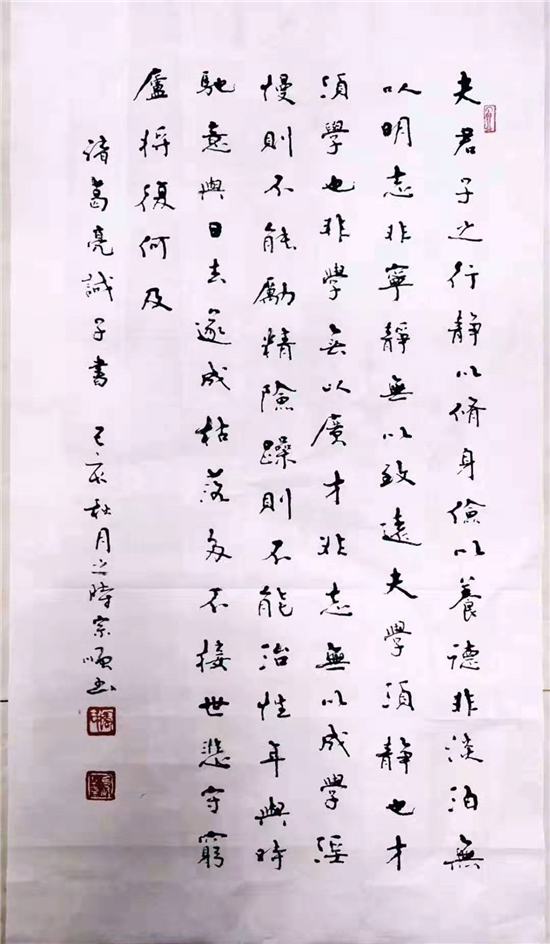 夫君子之行靜以脩身儉以養德非淡泊無
以明志非寧靜無以致遠夫學須靜也才
須學也非學無以廣才非志無以成學淫
慢則不能勵精險躁則不能治性年與時
馳意與日去遂成枯落多不接世悲守窮
廬將復何及
諸葛亮誡子書 己亥秋月之時宗順书